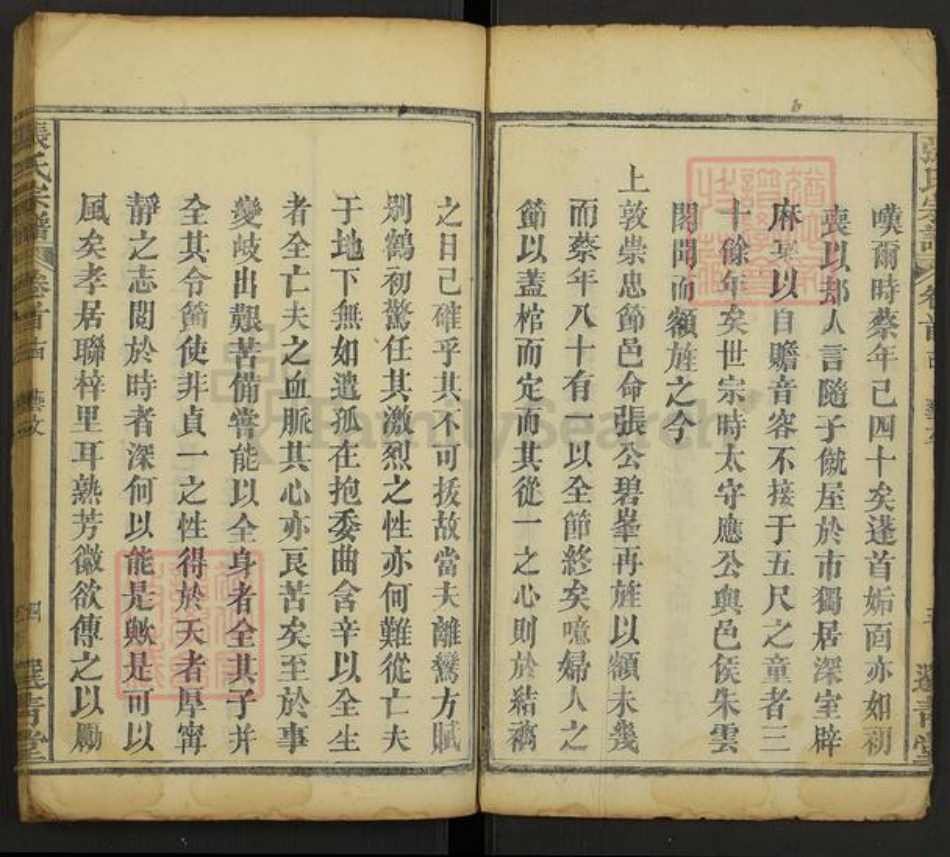 嘆爾時蔡年已四十矣蓬首姤面亦如初
喪以却人言隨子僦屋於市獨居深室辟
麻枲以自贍音容不接于五尺之童者三
十餘年矣世宗時太守應公輿邑侯朱雲
閣聞而額旌之今
上敦崇忠節邑命張公碧峯再旌以額未幾
而蔡年八十有一以全節終矣噫婦人之
節以蓋棺而定而其從一之心則於結褵
張氏宗譜 卷首 藝文 選青堂
之日已確乎其不可拔故當夫離鸞方賦
別鶴初驚任其激烈之性亦何難從亡夫
于地下無如遺孤在抱委曲含辛以全生
者全亡夫之血脈其心亦良苦矣至於事
變岐出艱苦備嘗能以全身者全其子并
全其令節使非貞一之性得於天者厚甯
靜之志閱於時者深何以能是歟是可以
風矣孝居聯梓里耳熟芳徽欲傳之以勵
張氏宗譜 卷首 藝文 四 選青堂
FamilySearch